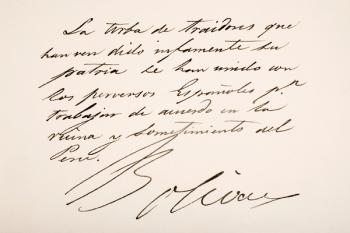 La turba de traidores que
han ven dido infamente su
patria se han unido con
los perversos Españoles p.r
trabajar de acuerdo en la
ruina y sometimiento del
Perú.
Bolívar